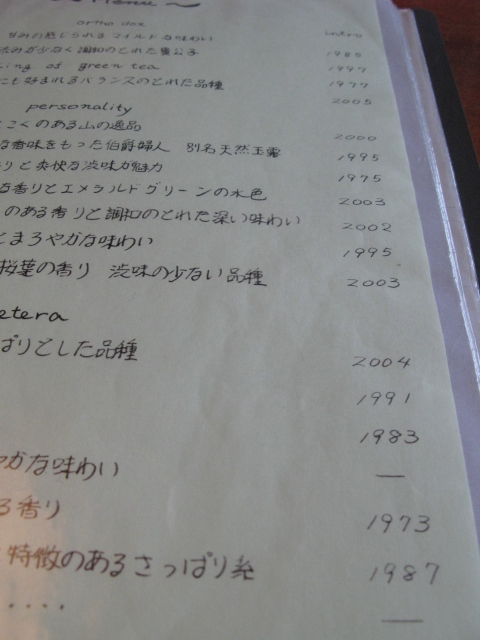 Menu ~
ortho dox
intro
甘みの感じられるマイルドな味わい 1985
渋みが少なく調和のとれた貴公子 1997
king of green tea 1977
にも好まれるバランスのとれた品種 2005
personality
こくのある山の逸品 2000
な香味をもった伯爵婦人 別名天然玉露 1995
りと爽快な渋味が魅力 1975
な香りとエメラルドグリーンの水色 2003
のある香りと調和のとれた深い味わい 2002
とまろやかな味わい 1995
桜葉の香り 渋味の少ない品種 2003
etera
ぱりとした品種 2004
1991
1983
やかな味わい —
る香り 1973
特徴のあるさっぱり系 1987
.... —